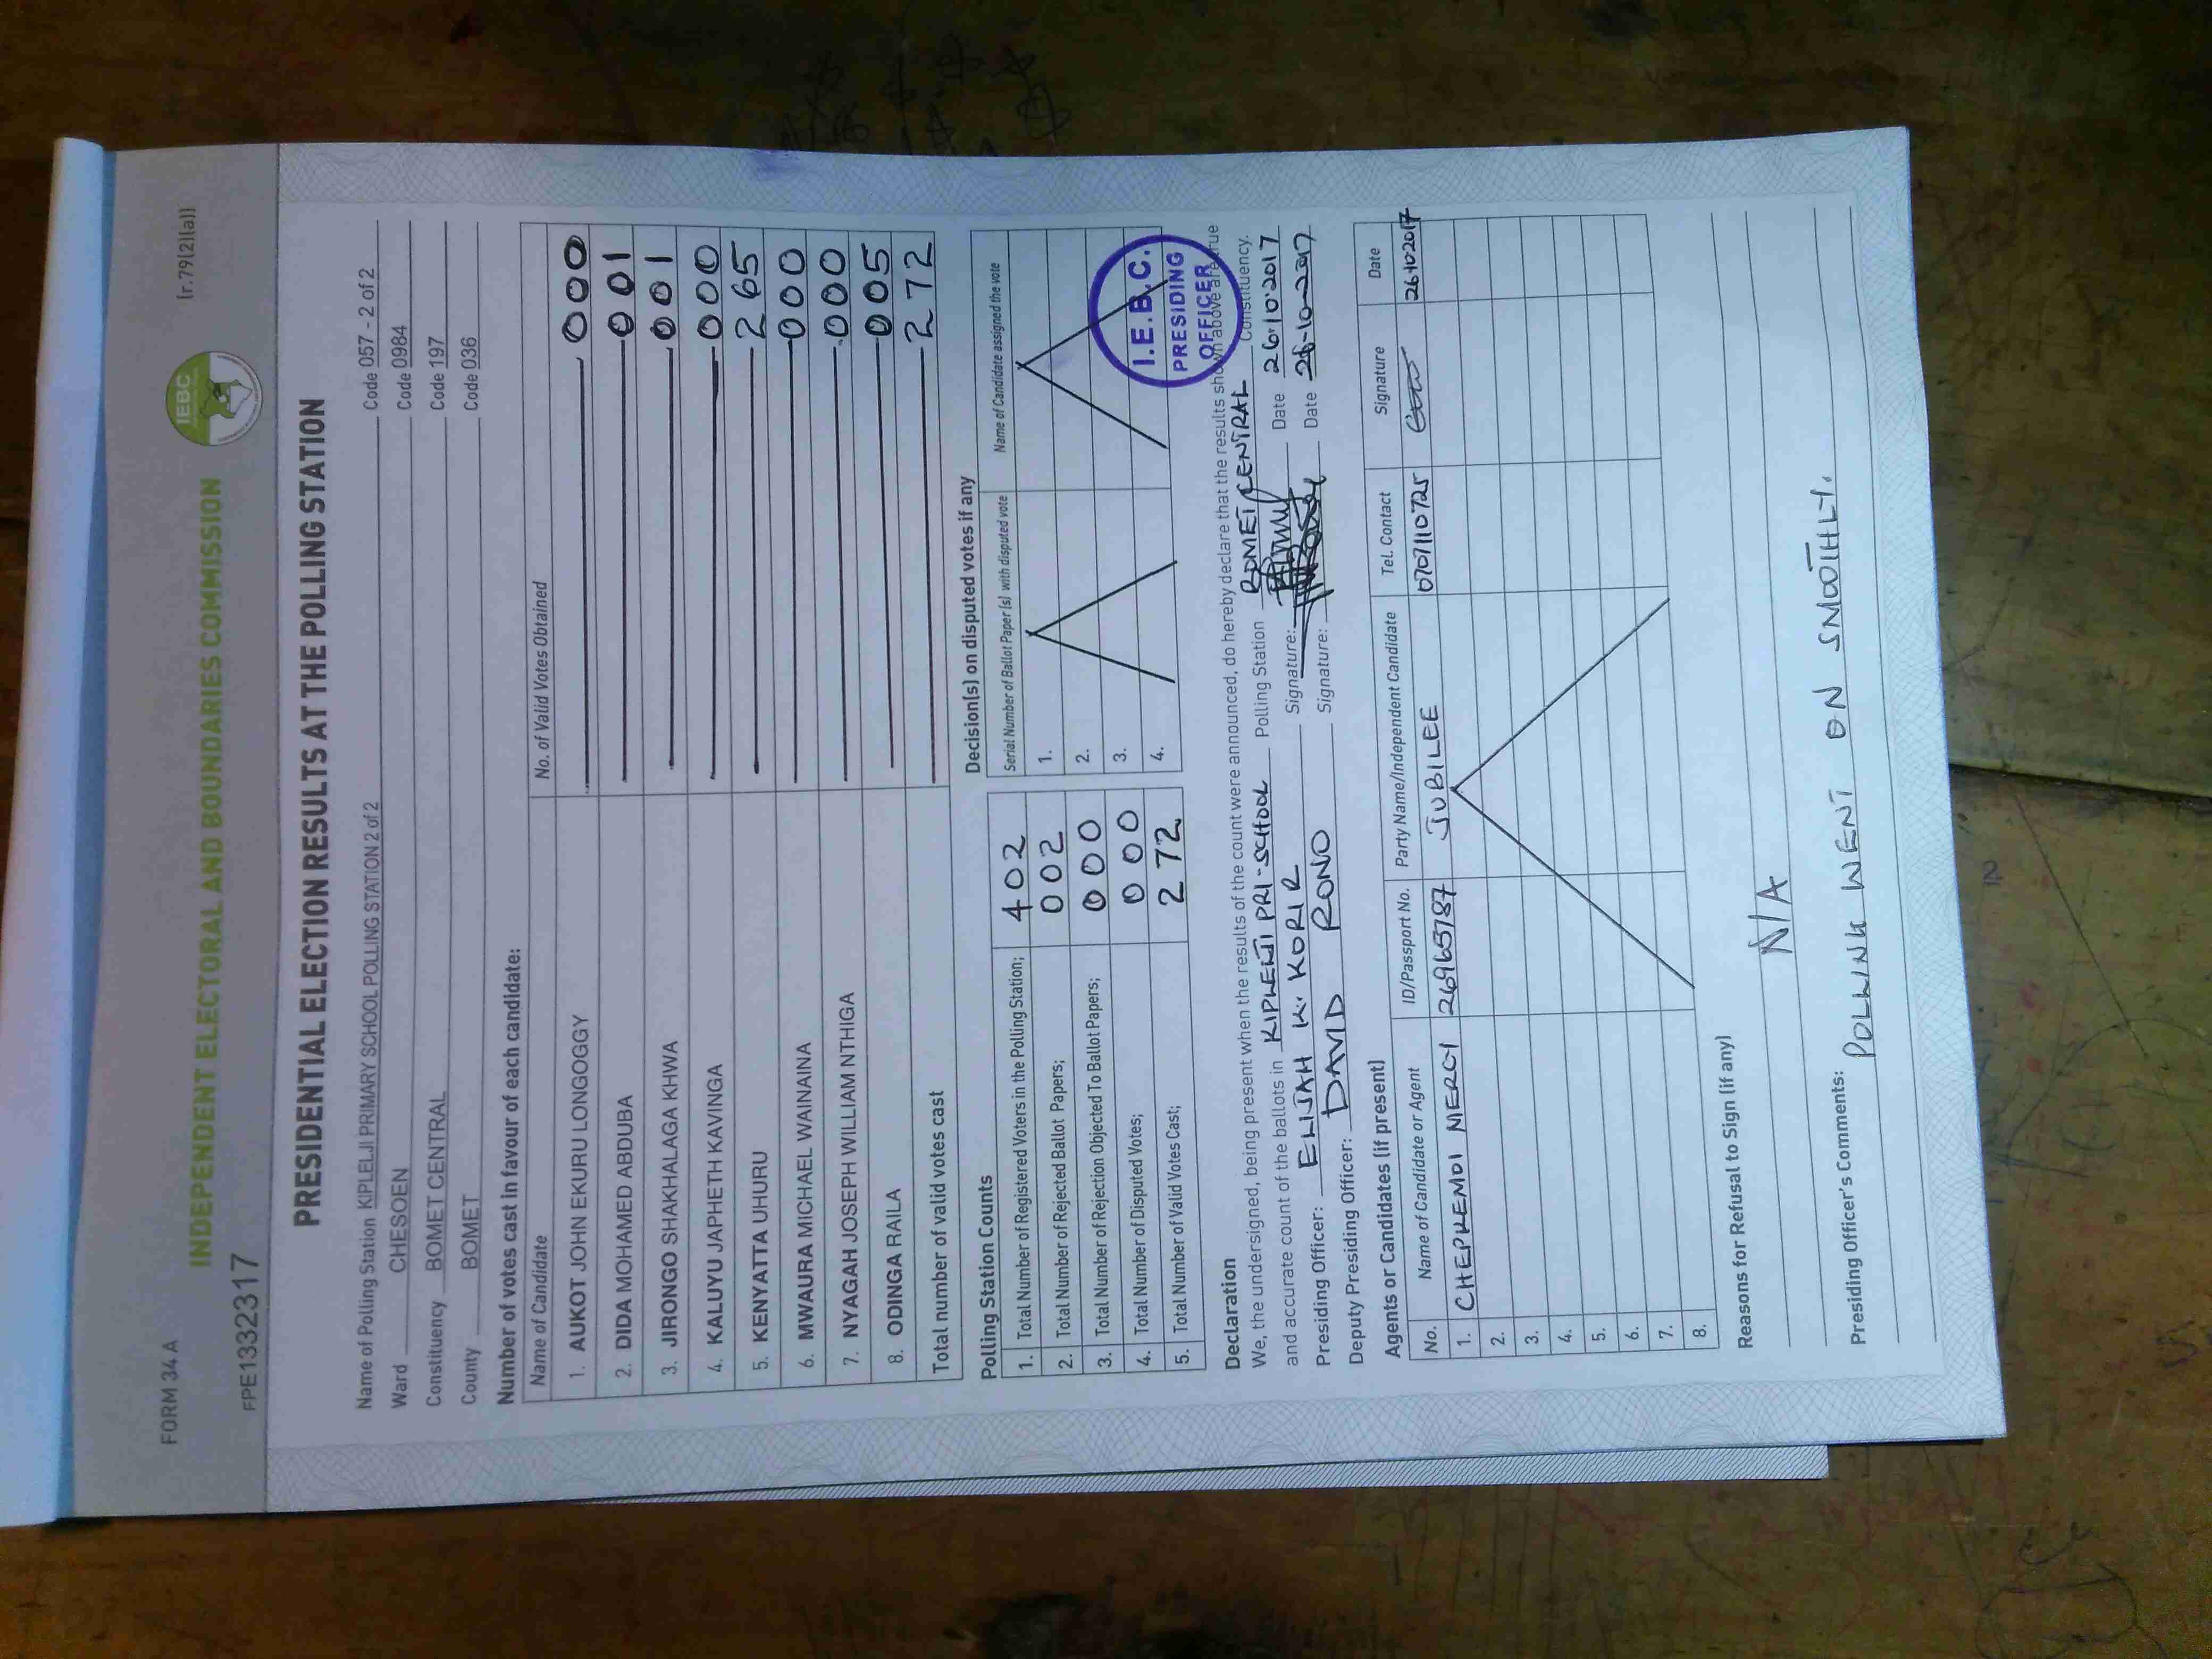 FORM 34 A
[r.79(2)(a)]
IEBC
INDEPENDENT ELECTORAL AND BOUNDARIES COMMISSION
FPE1332317
PRESIDENTIAL ELECTION RESULTS AT THE POLLING STATION
Name of Polling Station KIPLELJI PRIMARY SCHOOL POLLING STATION 2 of 2 Code 057 - 2 of 2
Ward CHESOEN Code 0984
Constituency BOMET CENTRAL Code 197
County BOMET Code 036
Number of votes cast in favour of each candidate:
Name of Candidate No. of Valid Votes Obtained
1. AUKOT JOHN EKURU LONGOGGY 000
2. DIDA MOHAMED ABDUBA 001
3. JIRONGO SHAKHALAGA KHWA 001
4. KALUYU JAPHETH KAVINGA 000
5. KENYATTA UHURU 265
6. MWAURA MICHAEL WAINAINA 000
7. NYAGAH JOSEPH WILLIAM NTHIGA 000
8. ODINGA RAILA 005
Total number of valid votes cast 272
Polling Station Counts
1. Total Number of Registered Voters in the Polling Station; 402
2. Total Number of Rejected Ballot Papers; 002
3. Total Number of Rejection Objected To Ballot Papers; 000
4. Total Number of Disputed Votes; 000
5. Total Number of Valid Votes Cast; 272
Decision(s) on disputed votes if any
Serial Number of Ballot Paper (s) with disputed vote Name of Candidate assigned the vote
1.
2.
3.
4.
I.E.B.C.
PRESIDING
OFFICER
Declaration
We, the undersigned, being present when the results of the count were announced, do hereby declare that the results shown above are true
and accurate count of the ballots in KIPLEWJI PRI-SCHOOL Polling Station BOMET CENTRAL Constituency.
Presiding Officer: ELIJAH K. KORIR Signature: Date 26.10.2017
Deputy Presiding Officer: DAVID RONO Signature: Date 26-10-2017
Agents or Candidates (if present)
No. Name of Candidate or Agent ID/Passport No. Party Name/Independent Candidate Tel. Contact Signature Date
1. CHEPKEMOI MERCY 26965787 JUBILEE 0707110725 26.10.2017
2.
3.
4.
5.
6.
7.
8.
Reasons for Refusal to Sign (if any)
N/A
Presiding Officer's Comments: POLLING WENT ON SMOOTHLY.